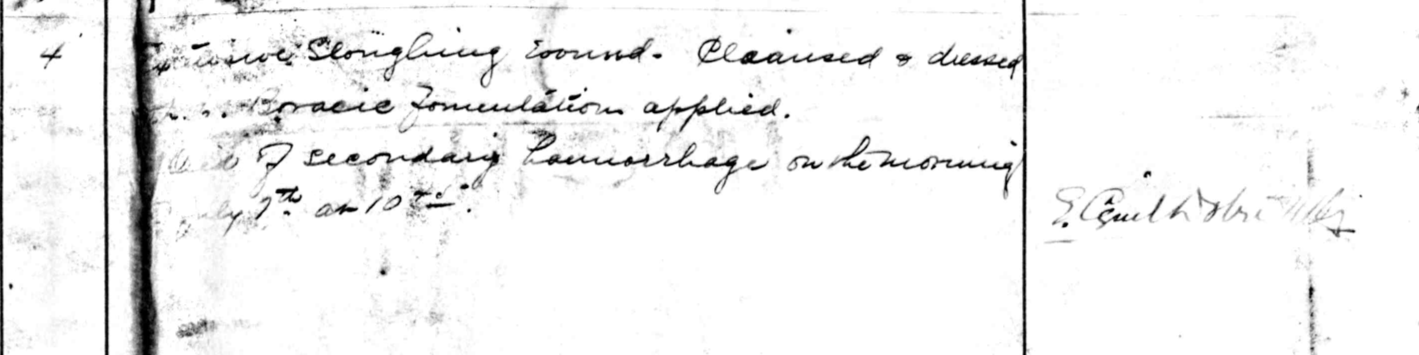 4 Extensive Sloughing wound. Cleansed & dressed
Boracic fomentations applied.
Died of secondary haemorrhage on the morning
July 7th at 10